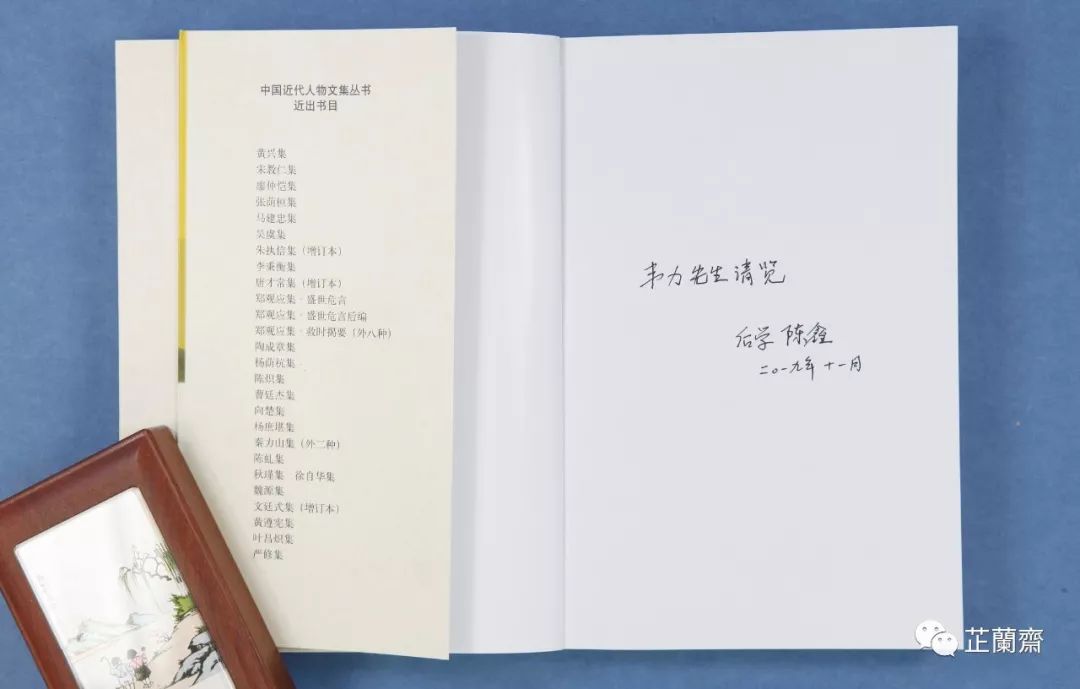 中国近代人物文集丛书
近出书目
黄兴集
宋教仁集
廖仲恺集
张荫桓集
马建忠集
吴虞集
朱执信集(增订本)
李秉衡集
唐才常集(增订本)
郑观应集·盛世危言
郑观应集·盛世危言后编
郑观应集·救时揭要(外八种)
陶成章集
杨荫杭集
陈炽集
曹廷杰集
向楚集
杨庶堪集
秦力山集(外二种)
陈虬集
秋瑾集 徐自华集
魏源集
文廷式集(增订本)
黄遵宪集
叶昌炽集
严修集
韦力先生请览
后学 陈鑫
二〇一九年十一月
芷蘭齋